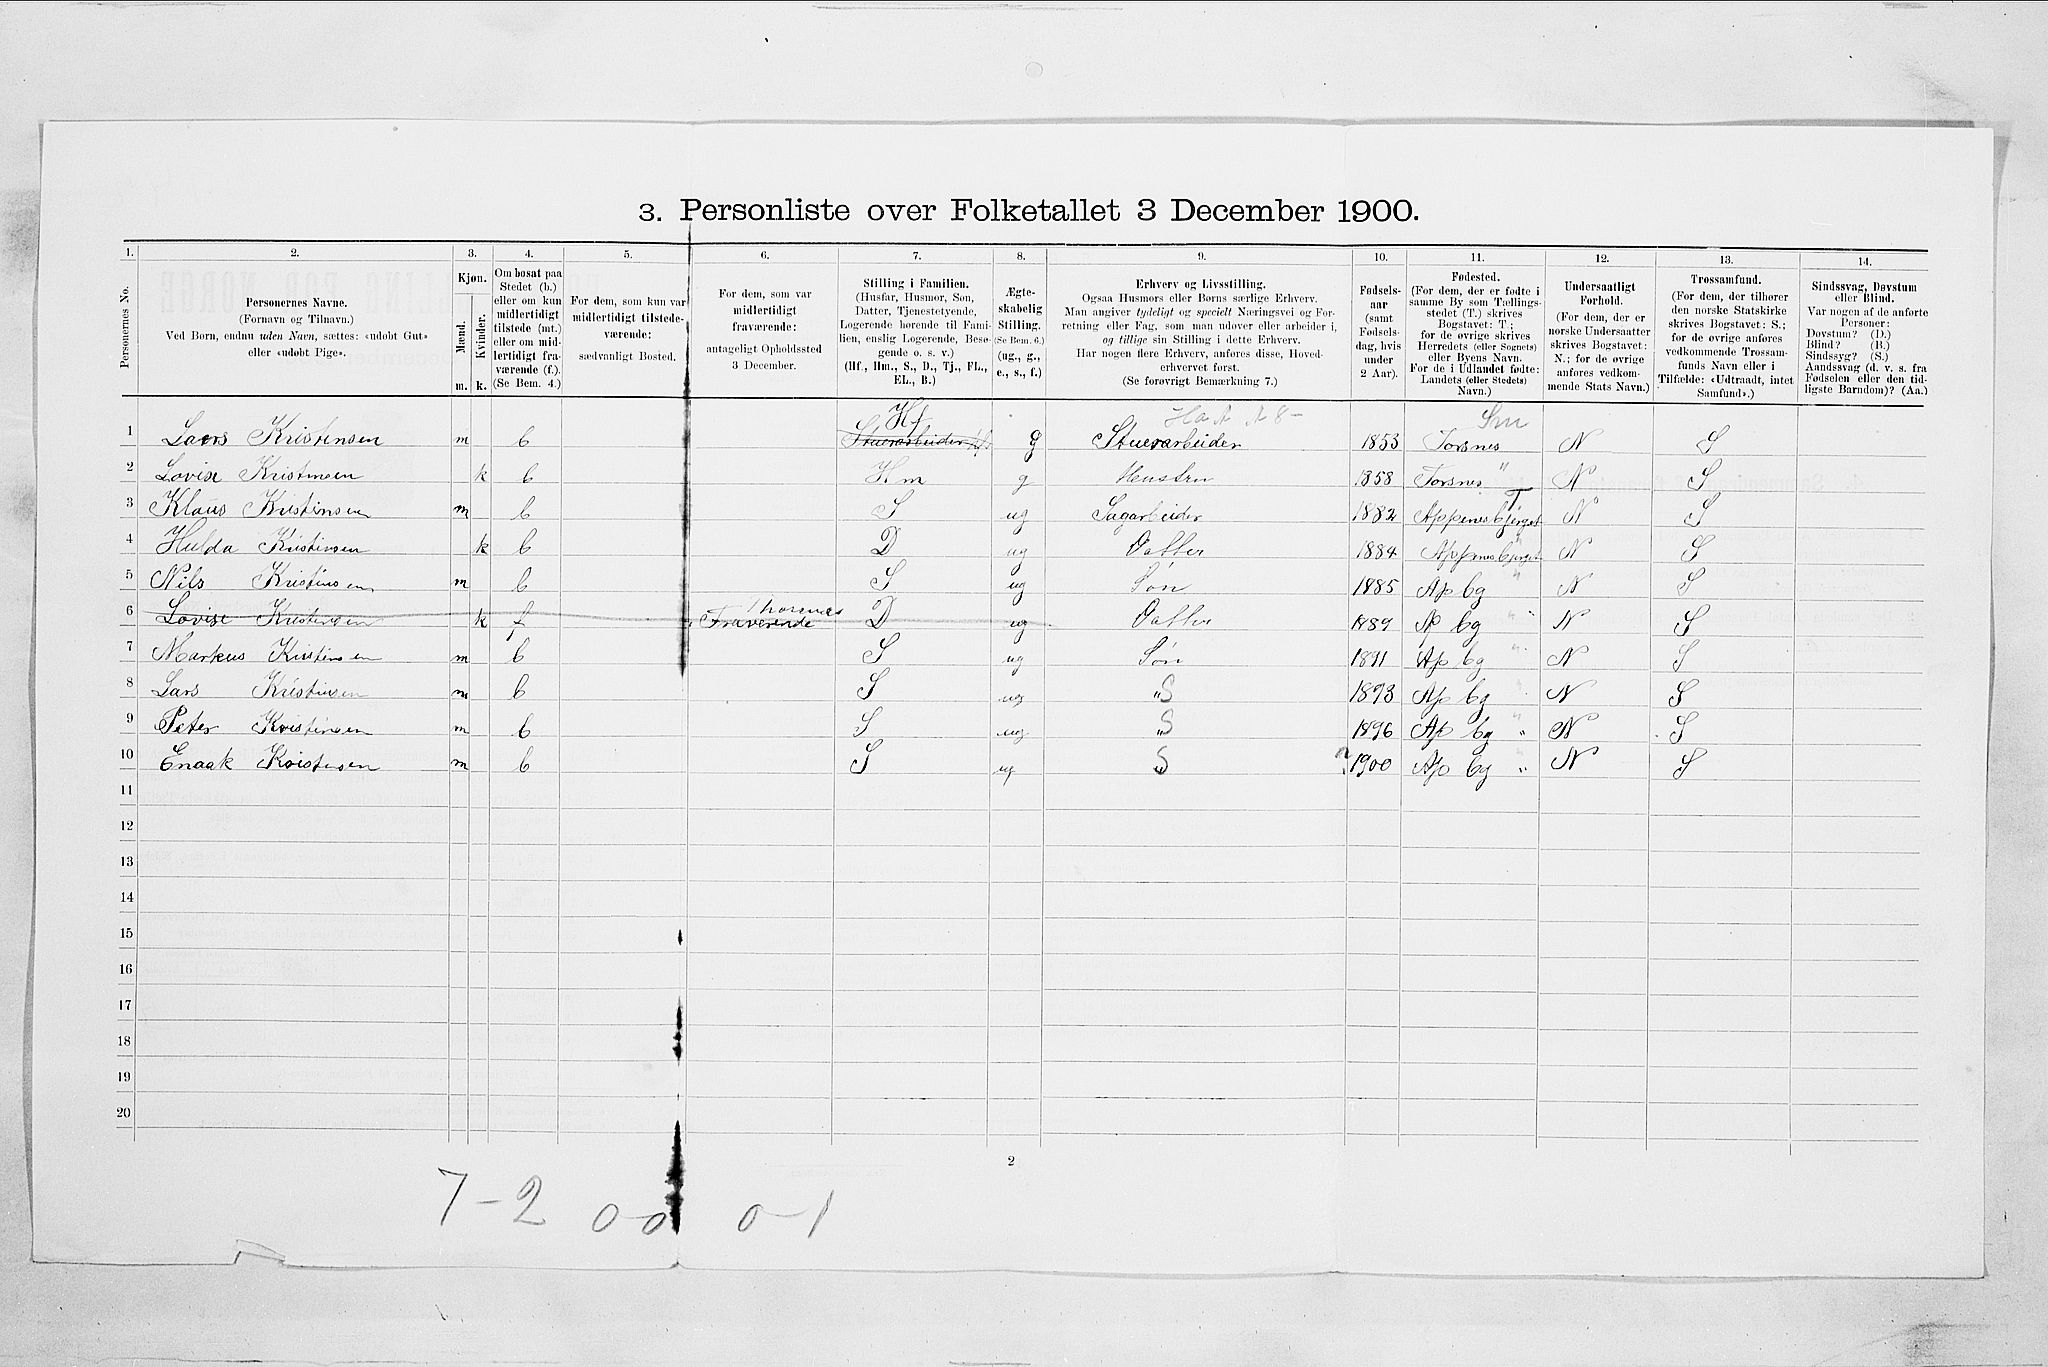 3. Personliste over Folketallet 3 December 1900.
1. 2. 3. 4. 5. 6. 7. 8. 9. 10. 11. 12. 13. 14.
Personernes No.
Personernes Navne.
(Fornavn og Tilnavn.)
Ved Børn, endnu uden Navn, sættes: «udøbt Gut»
eller «udøbt Pige».
Kjøn.
Mænd.
Kvinder.
m. k.
Om bosat paa
Stedet (b.)
eller om kun
midlertidigt
tilstede (mt.)
eller om mid-
lertidigt fra-
værende (f.).
(Se Bem. 4.)
For dem, som kun var
midlertidigt tilstede-
værende:
sædvanligt Bosted.
For dem, som var
midlertidigt
fraværende:
antageligt Opholdssted
3 December.
Stilling i Familien.
(Husfar, Husmor, Søn,
Datter, Tjenestetyende,
Logerende hørende til Fami-
lien, enslig Logerende, Besø-
gende o. s. v.)
(Hf., Hm., S., D., Tj., FL.,
EL., B.)
Ægte-
skabelig
Stilling.
(Se Bem. 6.)
(ug., g.,
e., s., f.)
Erhverv og Livsstilling.
Ogsaa Husmors eller Børns særlige Erhverv.
Man angiver tydeligt og specielt Næringsvei og For-
retning eller Fag, som man udøver eller arbeider i,
og tillige sin Stilling i dette Erhverv.
Har nogen flere Erhverv, anføres disse, Hoved-
erhvervet først.
(Se forøvrigt Bemærkning 7.)
Fødsels-
aar
(samt
Fødsels-
dag, hvis
under
2 Aar).
Fødested.
(For dem, der er fødte i
samme By som Tællings-
stedet (T.) skrives
Bogstavet: T.;
for de øvrige skrives
Herredets (eller Sognets)
eller Byens Navn.
For de i Udlandet fødte:
Landets (eller Stedets)
Navn.)
Undersaatligt
Forhold.
(For dem, der er
norske Undersaatter
skrives Bogstavet:
N.; for de øvrige
anføres vedkom-
mende Stats Navn.)
Trossamfund.
(For dem, der tilhører
den norske Statskirke
skrives Bogstavet: S.;
for de øvrige anføres
vedkommende Trossam-
funds Navn eller i
Tilfælde: «Udtraadt, intet
Samfund».)
Sindssvag, Døvstum
eller Blind.
Var nogen af de anførte
Personer:
Døvstum? (D.)
Blind? (B.)
Sindssyg? (S.)
Aandssvag (d. v. s. fra
Fødselen eller den tid-
ligste Barndom)? (Aa.)
Hf
1 Lars Kristensen m b Stuerarbeider g Stuerarbeider 1853 Torsnes N S
2 Lovise Kristensen k b Hm g Hustru 1858 Torsnes " N S
T
3 Klaus Kristensen m b S ug Sagarbeider 1882 Appenesbjerget N S
4 Hulda Kristensen k b D ug Datter 1884 Appenesbjerget N S
5 Nils Kristensen m b S ug Søn 1885 Ap bg " N S
Thorsnes
6 Lovise Kristensen k f Fraverende D ug Datter 1889 Ap bg " N S
7 Markus Kristensen m b S ug Søn 1891 Ap bg " N S
8 Lars Kristensen m b S ug " S 1893 Ap bg " N S
9 Peter Kristensen m b S ug " S 1896 Ap bg " N S
10 Enaak Kristensen m b S ug " S ? 1900 Ap bg " N S
11
12
13
14
15
16
17
18
19
20
2
7-2 0-0 0-1